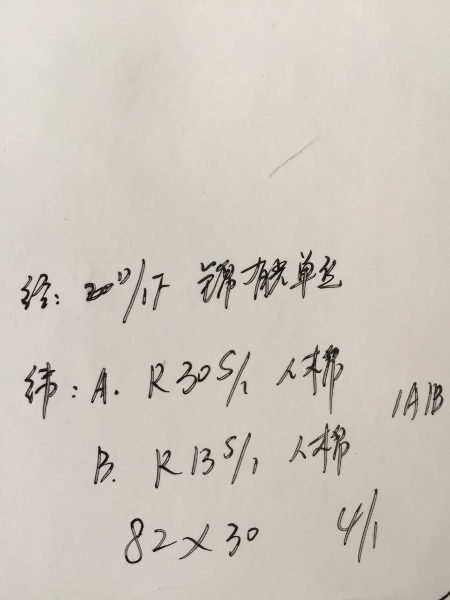 经: 20D/1F 锦有光单丝
纬: A. R30S/1 人棉
1A1B
B. R13S/1 人棉
82×30 4/1